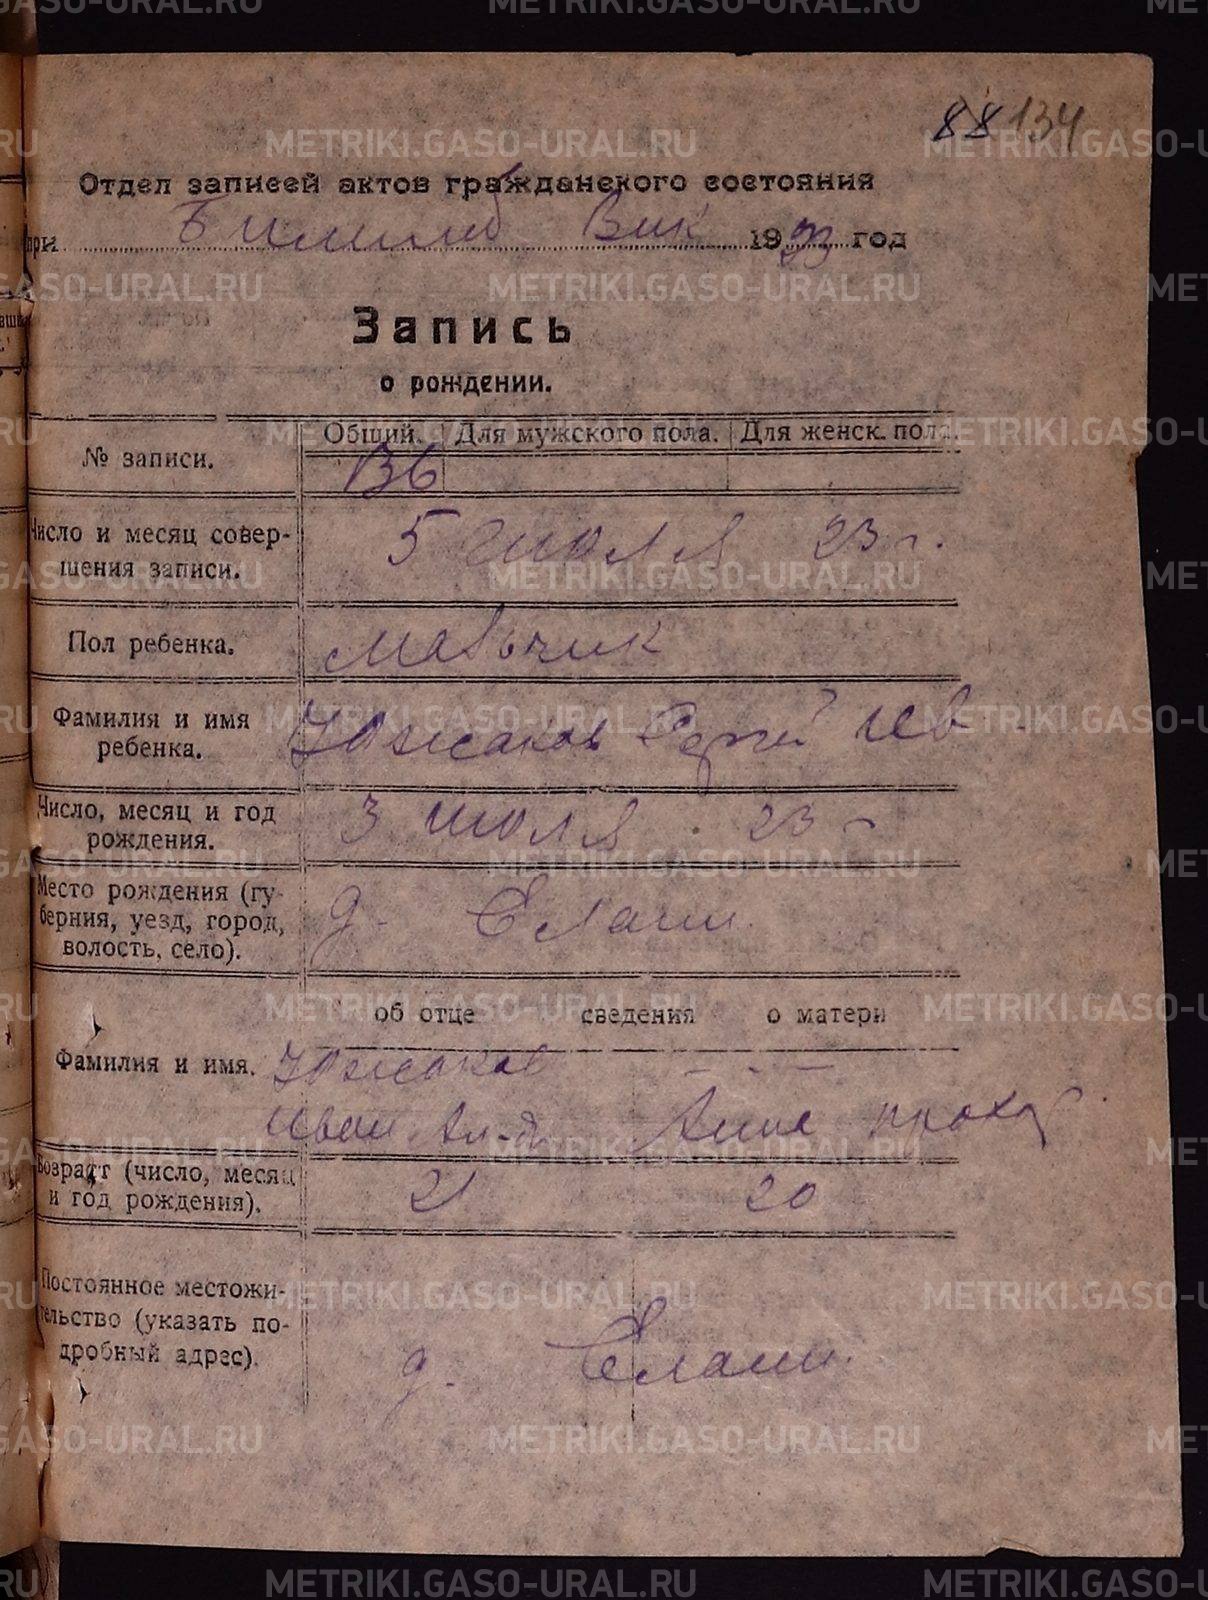 88 134
Отдел записей актов гражданского состояния
при Билимб Вик 1923 год
Запись
о рождении.
№ записи.
Общий. Для мужского пола. Для женск. пола.
136
Число и месяц совер-
шения записи.
5 июля 23 г.
Пол ребенка.
мальчик
Фамилия и имя
ребенка.
Южаков Сергей Ив.
Число, месяц и год
рождения.
3 июля 23 г
Место рождения (гу-
берния, уезд, город,
волость, село).
д. Елани.
об отце сведения о матери
Фамилия и имя.
Южаков
Иван Ал-др Анна Прохор.
Возраст (число, месяц
и год рождения).
21 20
Постоянное местожи-
тельство (указать по-
дробный адрес).
д. Елани.
METRIKI.GASO-URAL.RU